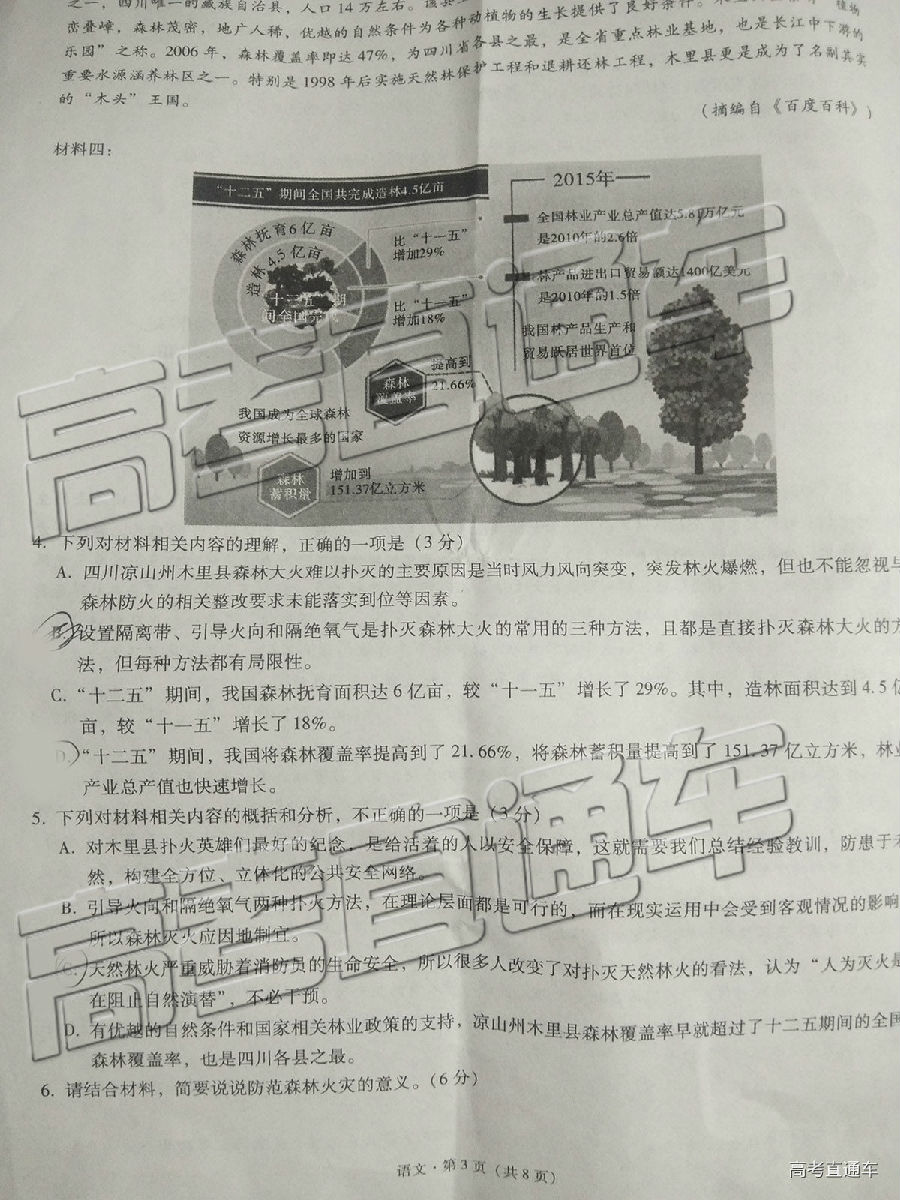 之一，四川唯一的藏族自治县，人口14万左右。该县
峦叠嶂，森林茂密，地广人稀，优越的自然条件为各种动植物的生长提供了良好条件。
乐园”之称。2006年，森林覆盖率即达47%，为四川省各县之最，是全省重点林业基地，也是长江中下游的
重要水源涵养林区之一。特别是1998年后实施天然林保护工程和退耕还林工程，木里县更是成为了名副其实
的“木头”王国。
（摘编自《百度百科》）
材料四：
“十二五”期间全国共完成造林4.5亿亩
森林抚育6亿亩
造林4.5亿亩
十二五 期
间全国完成
比“十一五”
增加29%
比“十一五”
增加18%
森林
覆盖率
提高到
21.66%
我国成为全球森林
资源增长最多的国家
森林
蓄积量
增加到
151.37亿立方米
2015年
全国林业产业总产值达5.81万亿元
是2010年的2.6倍
林产品进出口贸易额达1400亿美元
是2010年的1.5倍
我国林产品生产和
贸易跃居世界首位
4. 下列对材料相关内容的理解，正确的一项是（3分）
A. 四川凉山州木里县森林大火难以扑灭的主要原因是当时风力风向突变，突发林火爆燃，但也不能忽视与
森林防火的相关整改要求未能落实到位等因素。
B. 设置隔离带、引导火向和隔绝氧气是扑灭森林大火的常用的三种方法，且都是直接扑灭森林大火的方
法，但每种方法都有局限性。
C. “十二五”期间，我国森林抚育面积达6亿亩，较“十一五”增长了29%。其中，造林面积达到4.5亿
亩，较“十一五”增长了18%。
D. “十二五”期间，我国将森林覆盖率提高到了21.66%，将森林蓄积量提高到了151.37亿立方米，林业
产业总产值也快速增长。
5. 下列对材料相关内容的概括和分析，不正确的一项是（3分）
A. 对木里县扑火英雄们最好的纪念，是给活着的人以安全保障，这就需要我们总结经验教训，防患于未
然，构建全方位、立体化的公共安全网络。
B. 引导火向和隔绝氧气两种扑火方法，在理论层面都是可行的，而在现实运用中会受到客观情况的影响，
所以森林灭火应因地制宜。
C. 天然林火严重威胁着消防员的生命安全，所以很多人改变了对扑灭天然林火的看法，认为“人为灭火是
在阻止自然演替”，不必干预。
D. 有优越的自然条件和国家相关林业政策的支持，凉山州木里县森林覆盖率早就超过了十二五期间的全国
森林覆盖率，也是四川各县之最。
6. 请结合材料，简要说说防范森林火灾的意义。（6分）
语文·第3页（共8页）
高考直通车
高考直通车
高考直通车